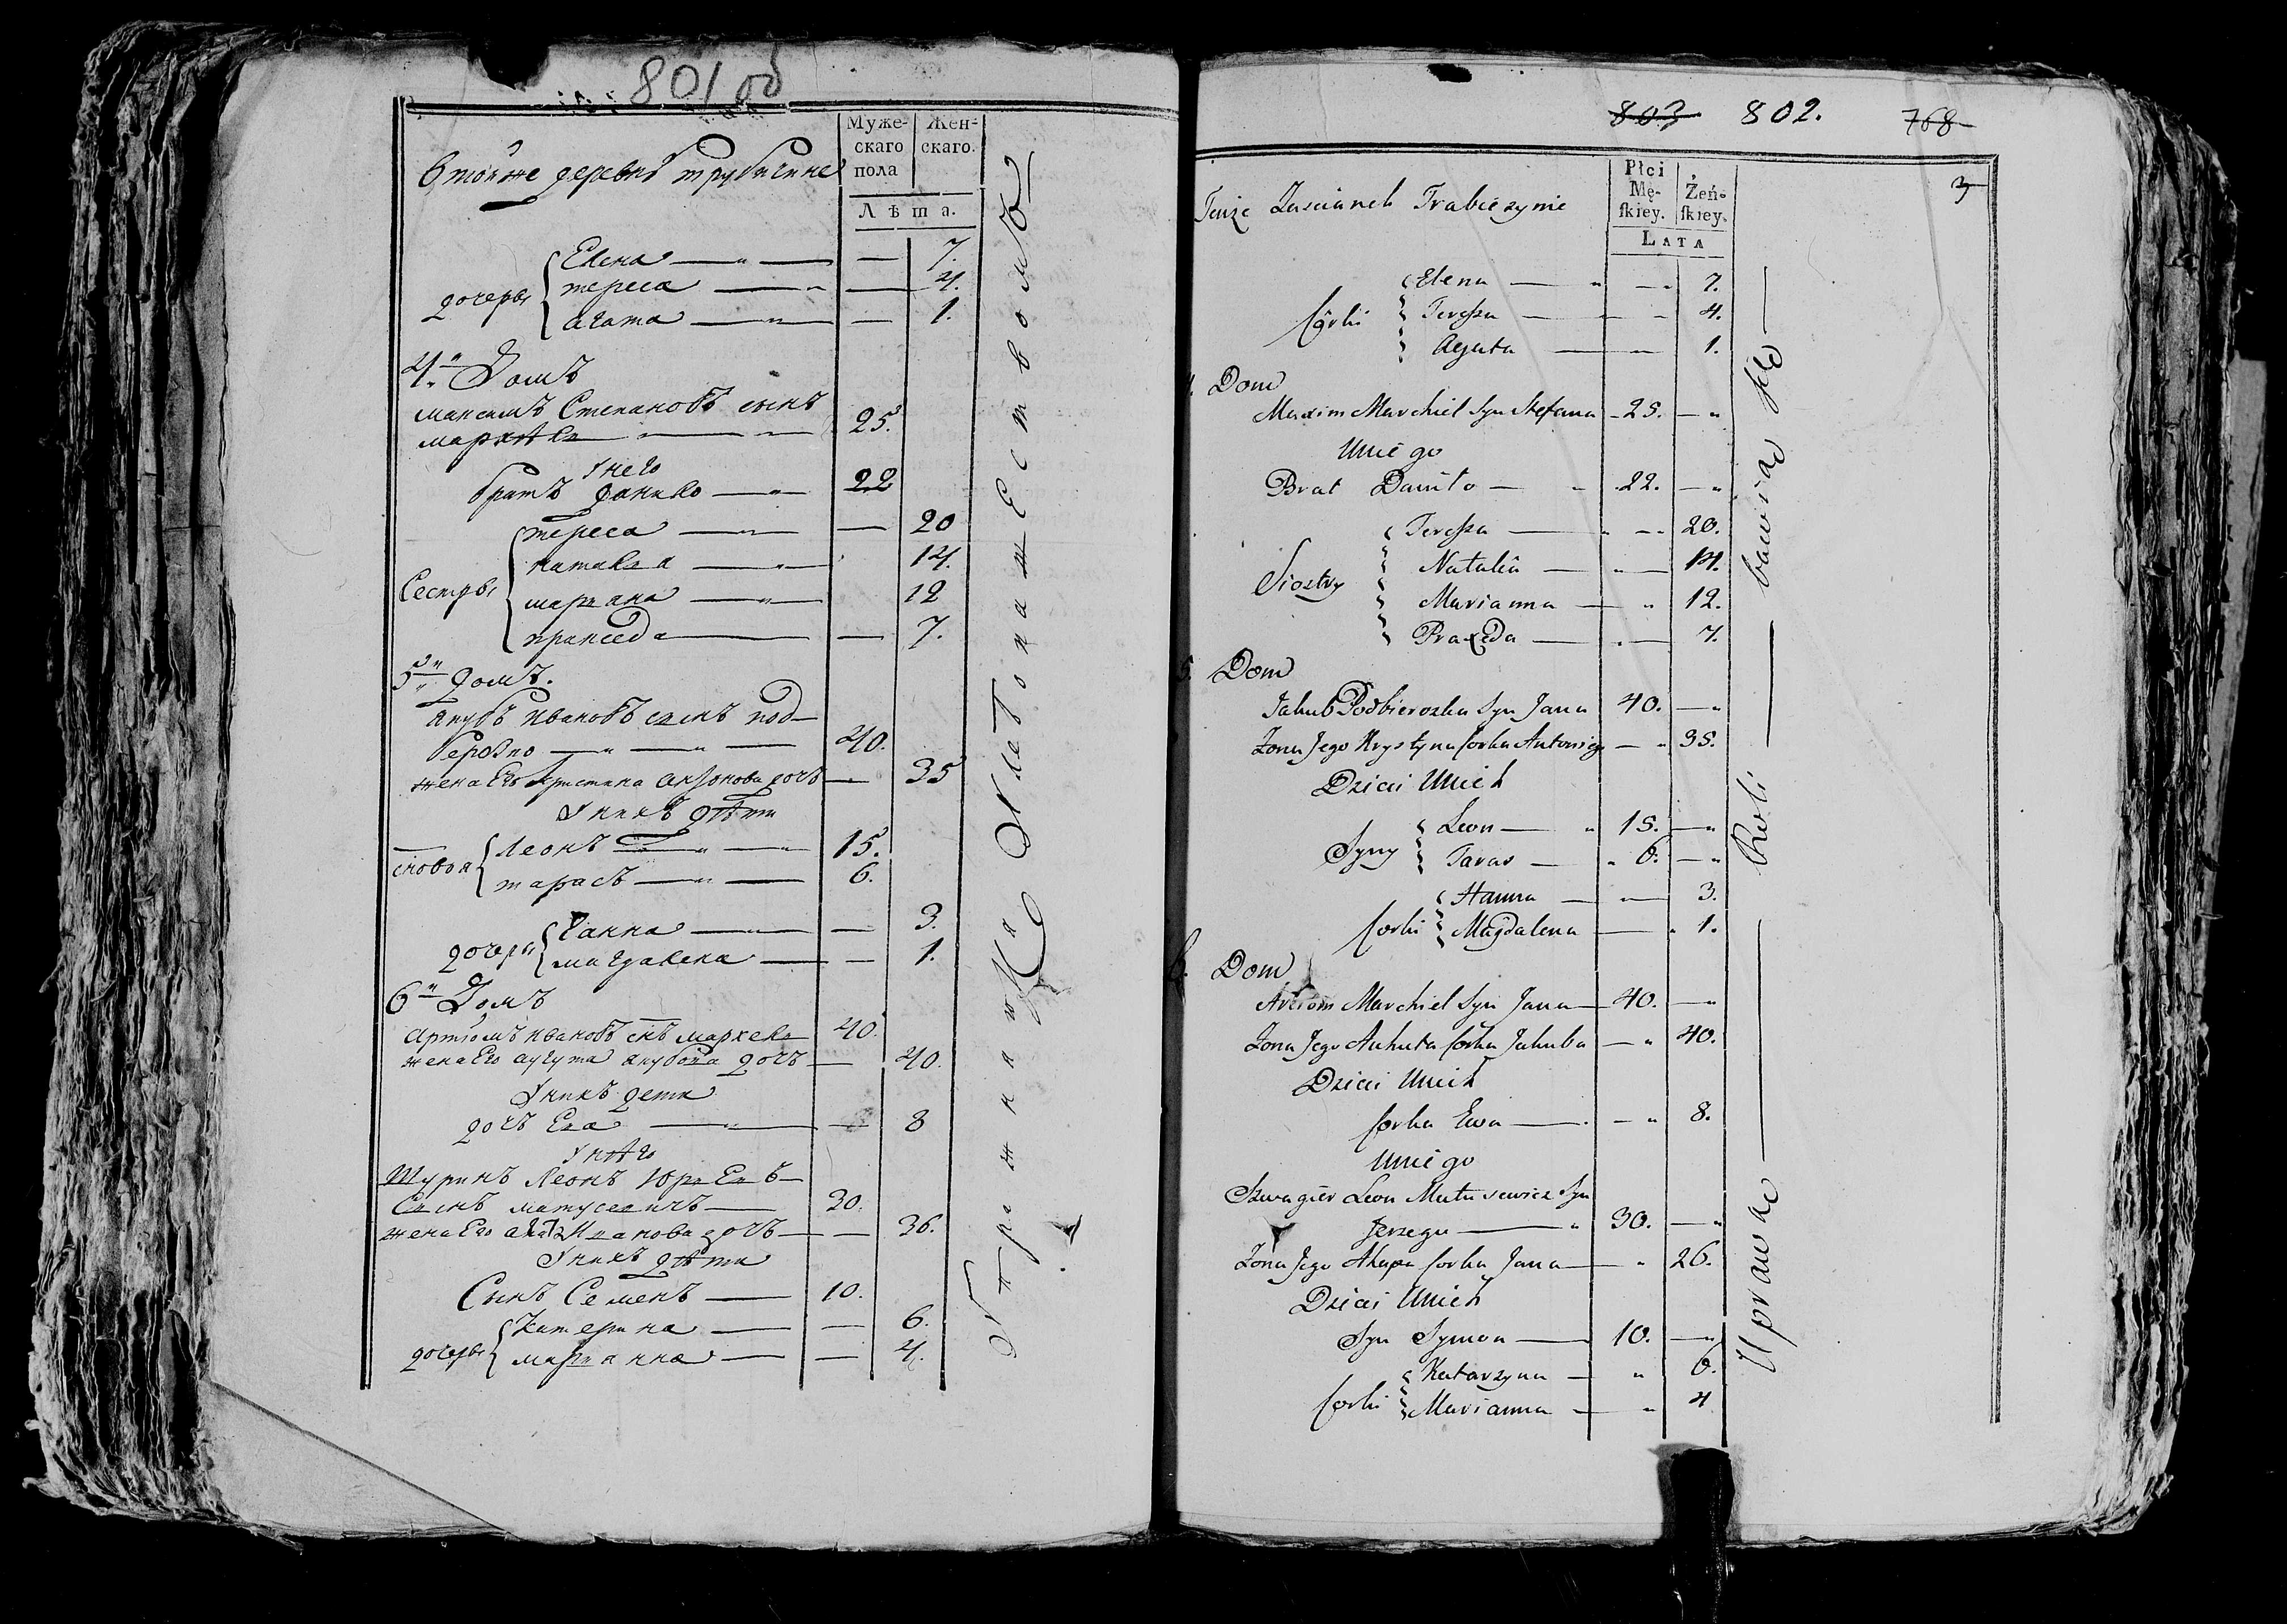 801 об
Муже-
скаго
пола
Жен-
скаго.
Лѣта.
Втойже деревнѣ трубичине
дочеры
Елена — 7.
тереса — 4.
агата — 1.
4й Домъ
максимъ Степановъ сынъ 25.
мархѣль
у него
братъ данило — 22
Сестры
тереса — 20
наталя — 14.
мариана — 12
пракседа — 7.
5й домъ.
якубъ Ивановъ сынъ под-
берозко — 40.
жена Его кристина антонова дочь — 35
у нихъ дѣти
сновья
Леонъ — 15.
тарасъ — 6.
дочеры
Ганна — 3.
магдалена — 1.
6й Домъ
Артіомъ Ивановъ снъ мархель 40.
жена Его якубова дочь — 40.
у нихъ дети
дочъ Ева — 8
у него
Шуринъ Леонъ Юріевъ
Сынъ матусевичъ — 30.
жена Его Иванова дочъ — 36.
у нихъ дѣти
Сынъ Семенъ — 10.
дочеры
Катерина — 6.
марианна — 4.
803 802. 768
3
Płci
Mę-
ſkiey.
Żeń-
ſkiey.
LATA
Teyże Zascianek Trabiczynie
Córki
Elena — 7.
Teressa — 4.
Agata — 1.
4. Dom
Maxim Marchiel Syn Stefana — 25.
U niego
Brat Daniło — 22.
Siostry
Teressa — 20.
Natalia — 14.
Marianna — 12.
Praxeda — 7.
5. Dom
Jakub Podbierozka Syn Jana 40.
Żona Jego Krystyna Corka Antoniego — 35.
Dzieci U nich
Syny
Leon — 15.
Taras — 6.
Corki
Hanna — 3.
Magdalena — 1.
6. Dom
Arciom Marchiel Syn Jana — 40.
Żona Jego Ahuta Córka Jakuba — 40.
Dzieci U nich
Corka Ewa — 8.
U niego
Szwagier Leon Matusewicz Syn
Jerzego — 30.
Żona Jego Ahapa Corka Jana — 26.
Dzieci U nich
Syn Symon — 10.
Corki
Katarzyna — 6.
Marianna — 4
Uprawą — Roli — bawią się —